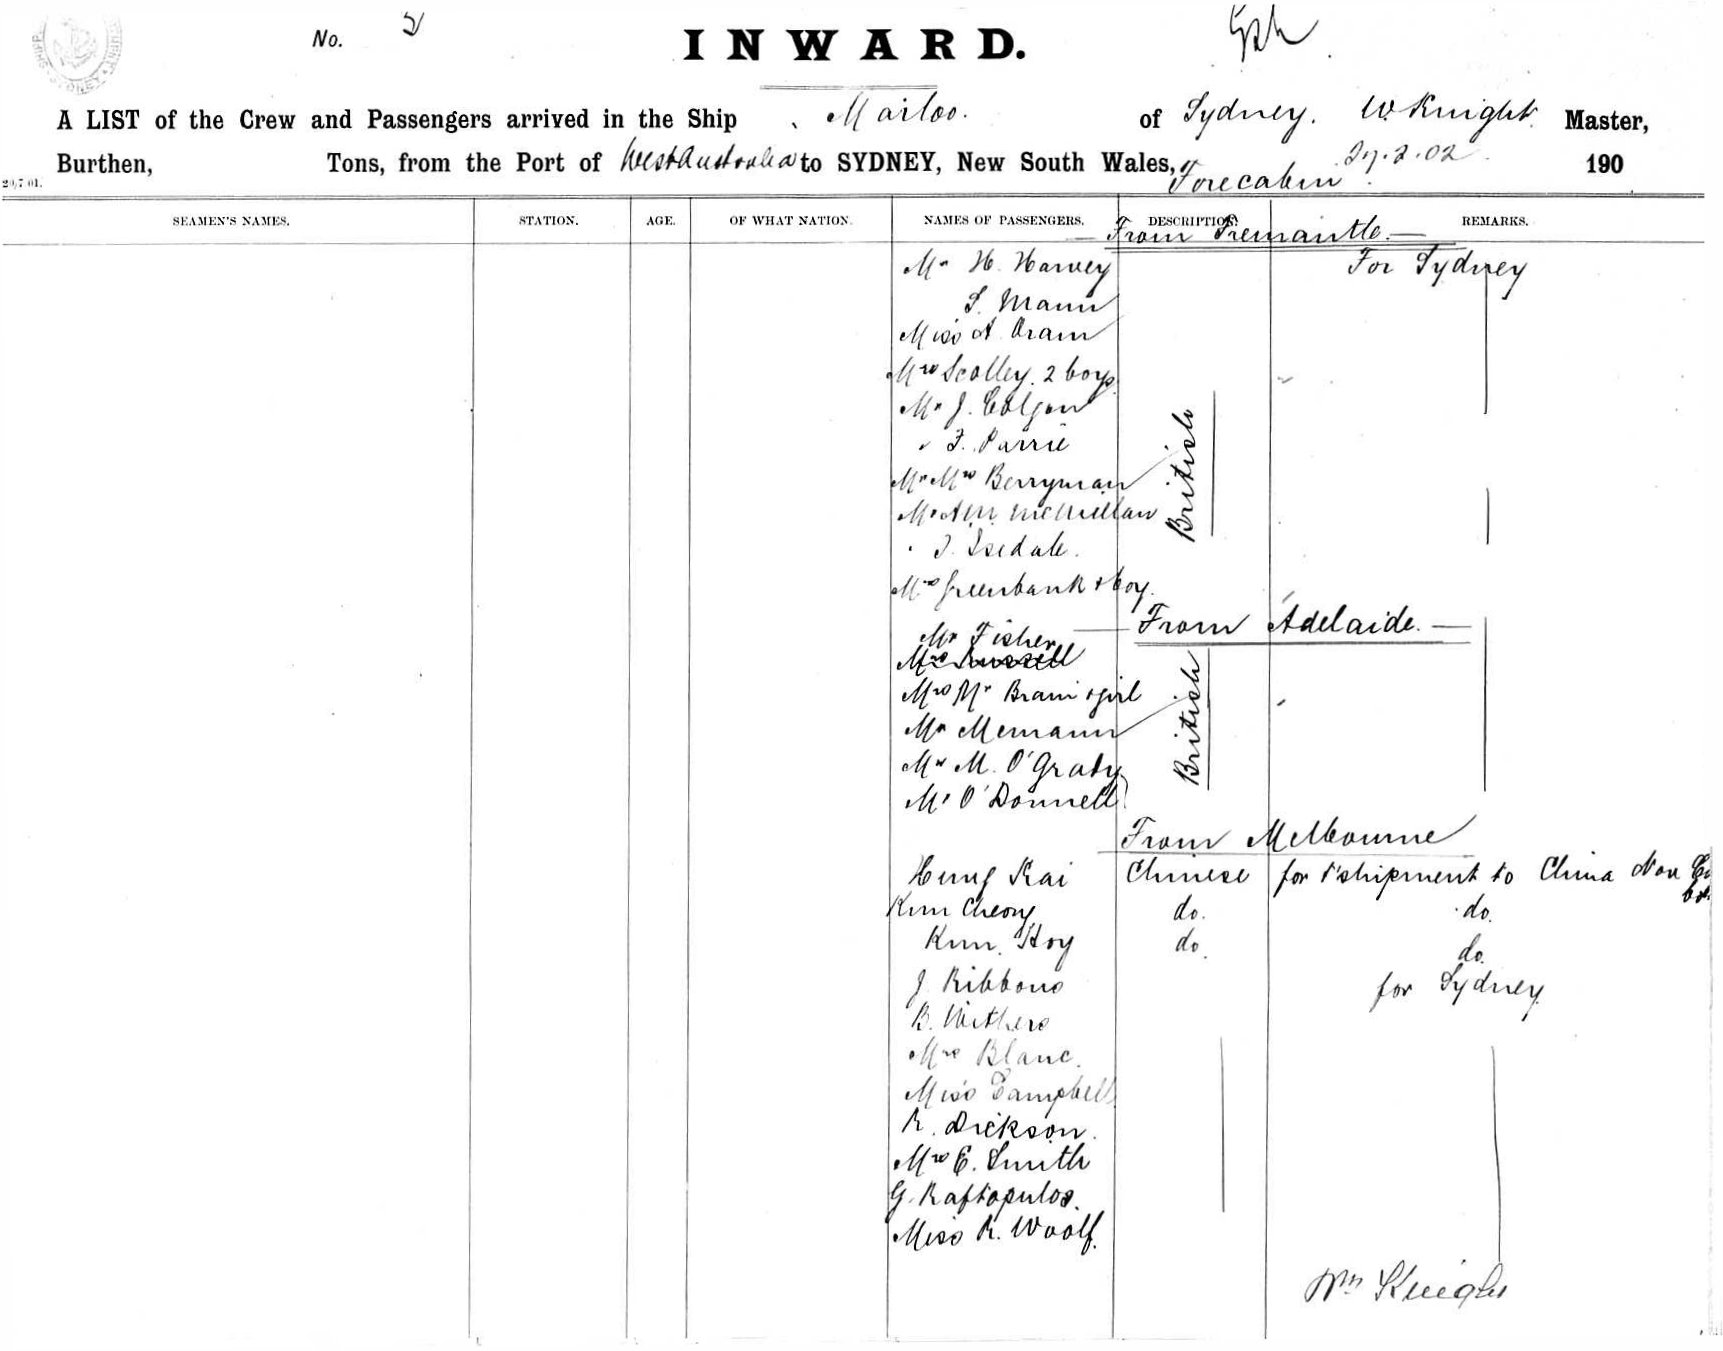 No. 2
INWARD.
A LIST of the Crew and Passengers arrived in the Ship Mailoo. of Sydney. W. Knight. Master,
Burthen, Tons, from the Port of West Australia to SYDNEY, New South Wales, 27.2.02 190
20/7/01.
Forecabin
SEAMEN'S NAMES. STATION. AGE. OF WHAT NATION. NAMES OF PASSENGERS. DESCRIPTION. REMARKS.
From Fremantle.
Mr H. Harvey For Sydney
S. Mann
Miss A. Oram
Mrs Scolley. 2 boys
Mr J. Colgan
" F. Parrie
Mr Mrs Berryman
Mr A.M. McMillan
" J. Isedale.
Mrs Greenbank & boy.
British
From Adelaide.
Mr Fisher
Mrs Russell
Mrs Mr Brain & girl
Mr Memann
Mr M. O'Grady
Mr O'Donnell
British
From Melbourne
Hung Kai Chinese for t'shipment to China Non
Kum Cheong do. do.
Kum Hoy do. do.
J. Ribbons for Sydney.
B. Withers
Mrs Blanc.
Miss Campbell
R. Dickson.
Mrs E. Smith
G. Raftopulos.
Miss R. Woolf.
Wm Knight